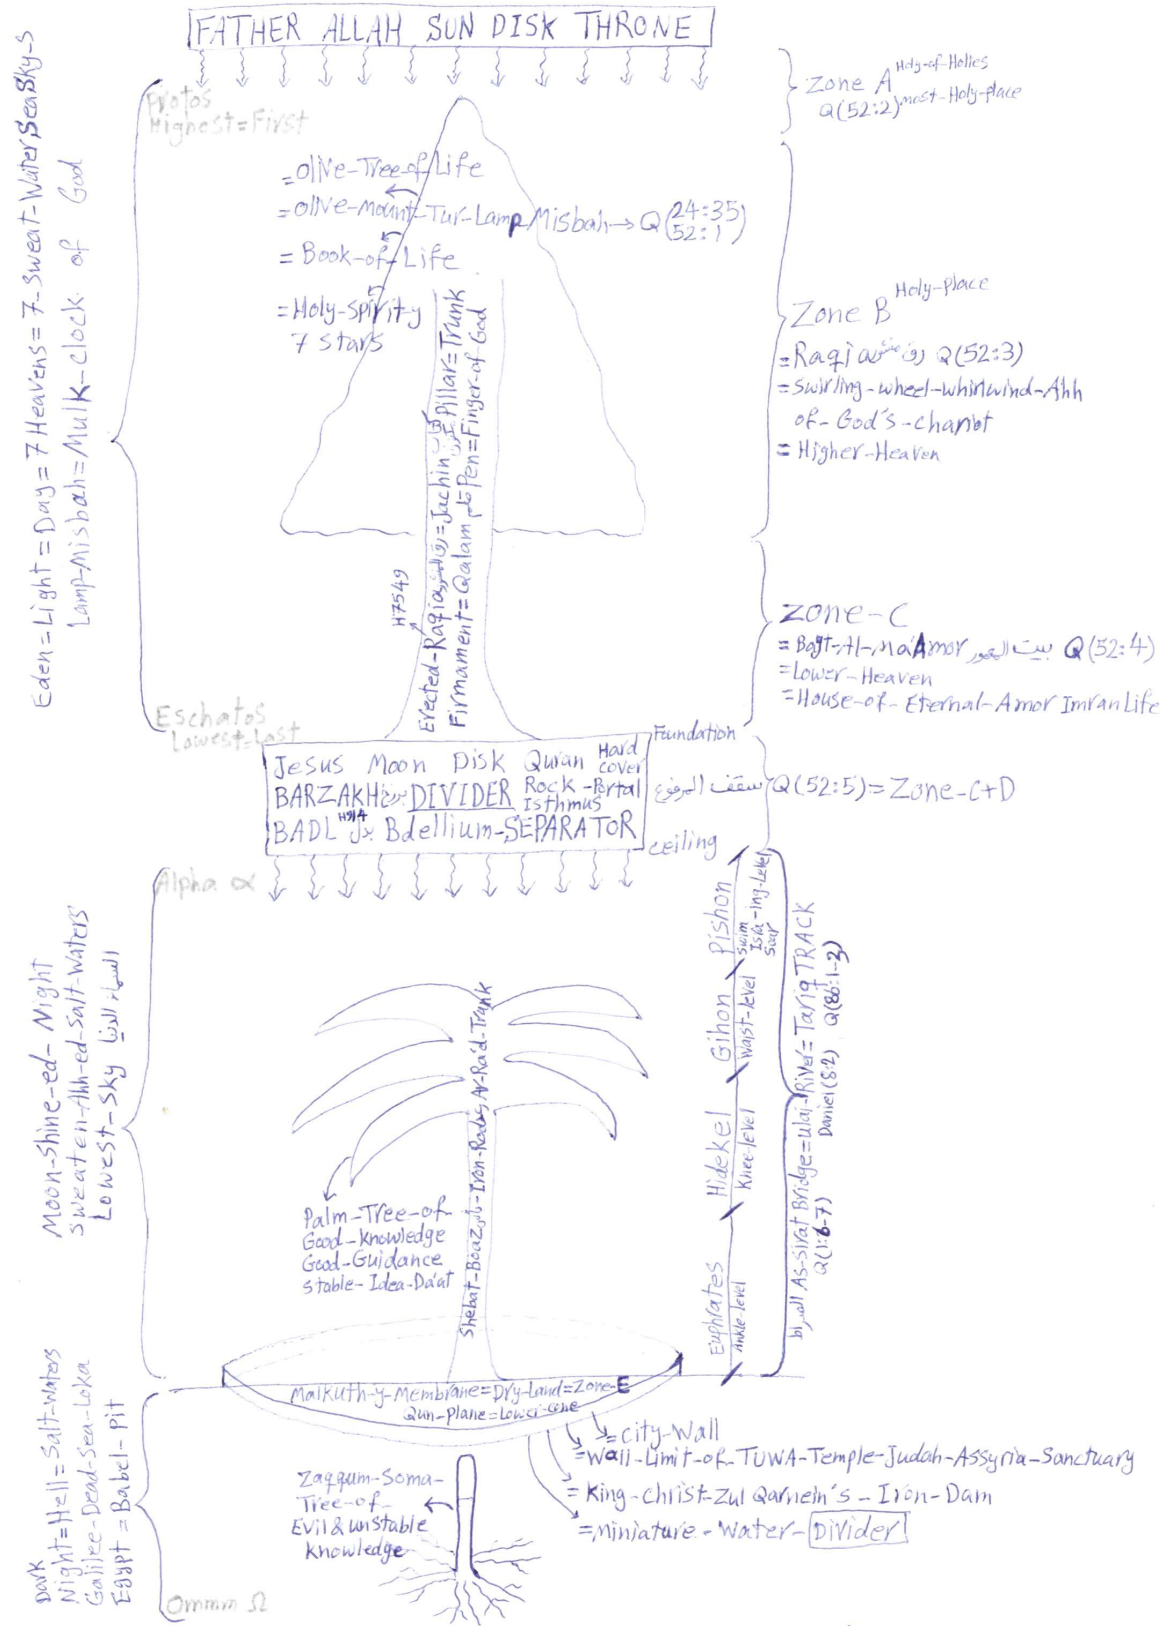 FATHER ALLAH SUN DISK THRONE
Zone A Holy-of-Holies
Q(52:2) most-Holy-place
Protos
Highest=First
Eden=Light=Day=7 Heavens=7-Sweat-Water,SeaSky-s
Lamp-Misbah=Mulk-clock of God
=Olive-Tree-of-Life
=Olive-Mount-Tur-Lamp Misbah→Q(24:35
52:1)
=Book-of-Life
=Holy-Spirit-y
7 Stars
Zone B Holy-place
=Raqia Q(52:3)
=Swirling-wheel-whirlwind-Ahh
of-God's-chariot
=Higher-Heaven
Erected-Raqia=Jachin Pillar=Trunk
Firmament=Qalam قلم Pen=Finger-of God
H7549
ZONE-C
=Bayt-Al-Ma'Amor بيت المعمور Q(52:4)
=Lower-Heaven
=House-of-Eternal-Amor Imran Life
Eschatos
Lowest=Last
Foundation
Jesus Moon Disk Quran Hard
cover
BARZAKH برزخ DIVIDER Rock-Portal
Isthmus
BADL بدل H914 Bdellium-SEPARATOR
سقف المرفوع Q(52:5)=Zone-C+D
ceiling
Alpha α
Moon-Shine-ed-Night
Sweaten-Ahh-ed-Salt-Waters
Lowest-Sky السماء الدنيا
Shebat-Boaz-Iron-Rod Ar-Ra'd-Trunk
Palm-Tree-of-
Good-Knowledge
Good-Guidance
Stable-Idea-Da'at
Pishon
Swim
Isra-ing-Level
Soar
Gihon
Waist-level
Hidekel
Knee-level
Euphrates
Ankle-level
الصراط As-Sirat Bridge=Ulai-River=Tariq TRACK
Q(1:6-7) Daniel(8:2) Q(86:1-3)
Malkuth-y-Membrane=Dry-Land=Zone-E
Qun-plane=Lower-cone
=City-Wall
=Wall-Limit-of-TUWA-Temple-Judah-Assyria-Sanctuary
=King-Christ-Zul Qarnein's-Iron-Dam
=Miniature-Water-Divider
Dark
Night=Hell=Salt-Waters
Galilee-Dead-Sea-Loka
Egypt=Babel-Pit
Zaqqum-Soma-
Tree-of-
Evil & unstable
Knowledge
Ommm Ω